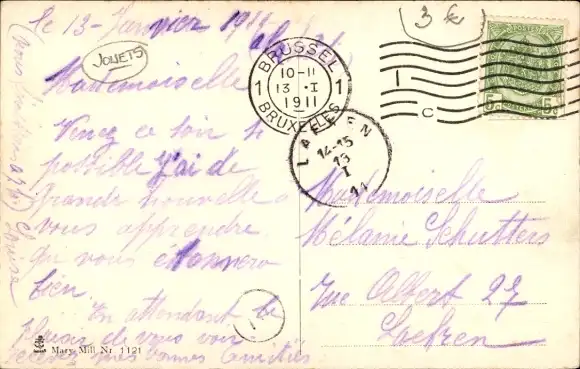 le 13 Janvier 1911
JOUETS
3 k
Mademoiselle
Venez ce soir si
possible J'ai de
grande nouvelle a
vous apprendre
qu vous étonnera
bien.
En attendant le
plaisir de vous voir
recevez mes bonnes amitiés
Louisa
BRUSSEL
1 10-11 1
13 I
1911
BRUXELLES
LAEKEN
14-15
13
I
11
I
C
POSTES
5c 5c
Mademoiselle
Mélanie Schutters
Rue Albert 27
Laeken
Mary Mill Nr. 1121